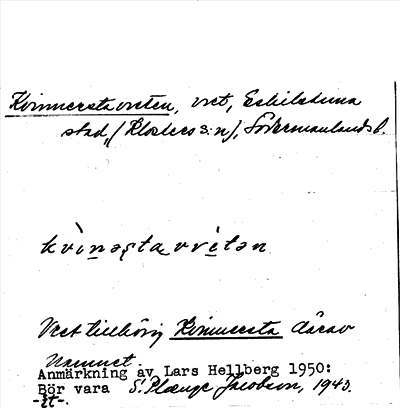 Kvinnerstavreten, vret, Eskilstuna
stad, (Klosters s:n), Södermanlands l.
kvìnəṣta vre̱tən
Vret tillhörig Kvinnersta därav
namnet.
Anmärkning av Lars Hellberg 1950:
Bör vara S. Plænge Jacobson, 1943.
-et-.